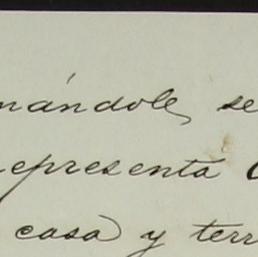 nándole, se
representa
casa y terr